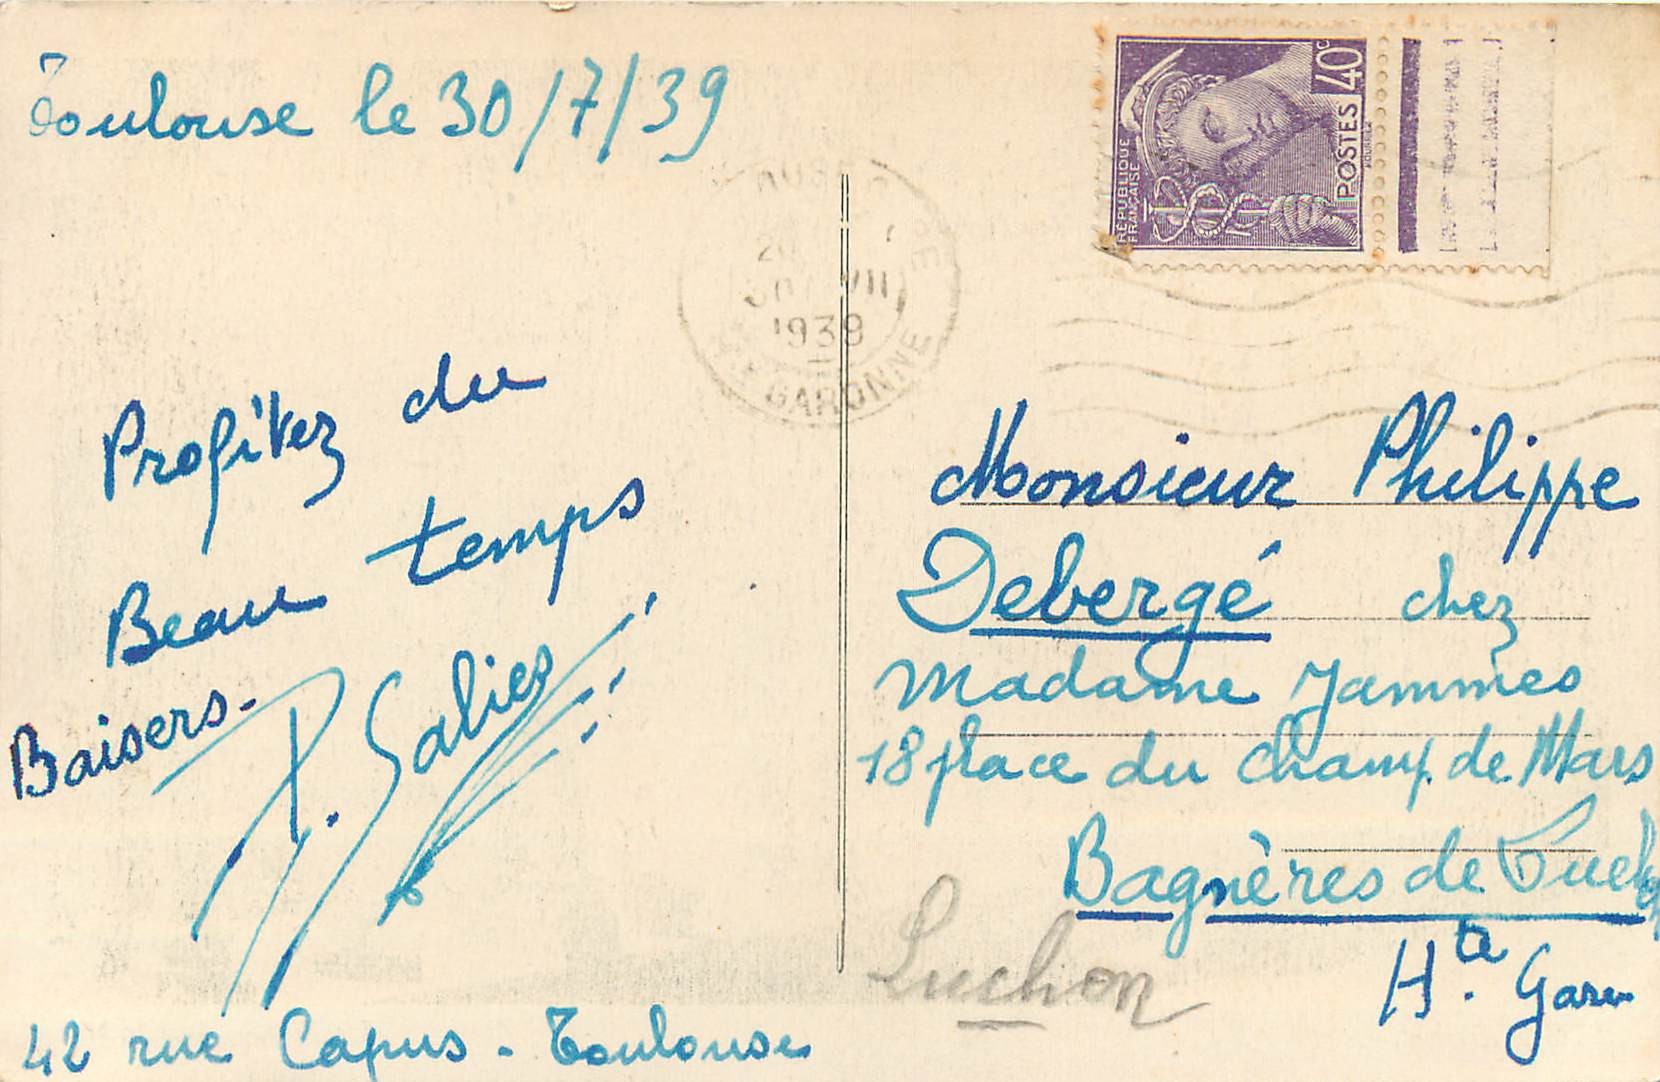 Toulouse le 30/7/39
Profitez du
Beau temps
Baisers.
P. Salies
42 rue Capus - Toulouse
RÉPUBLIQUE
FRANÇAISE
POSTES 40c
1939
GARONNE
Monsieur Philippe
Debergé chez
Madame Jammes
18 place du champ de Mars
Bagnères de Luchon
Hte. Garon
Luchon